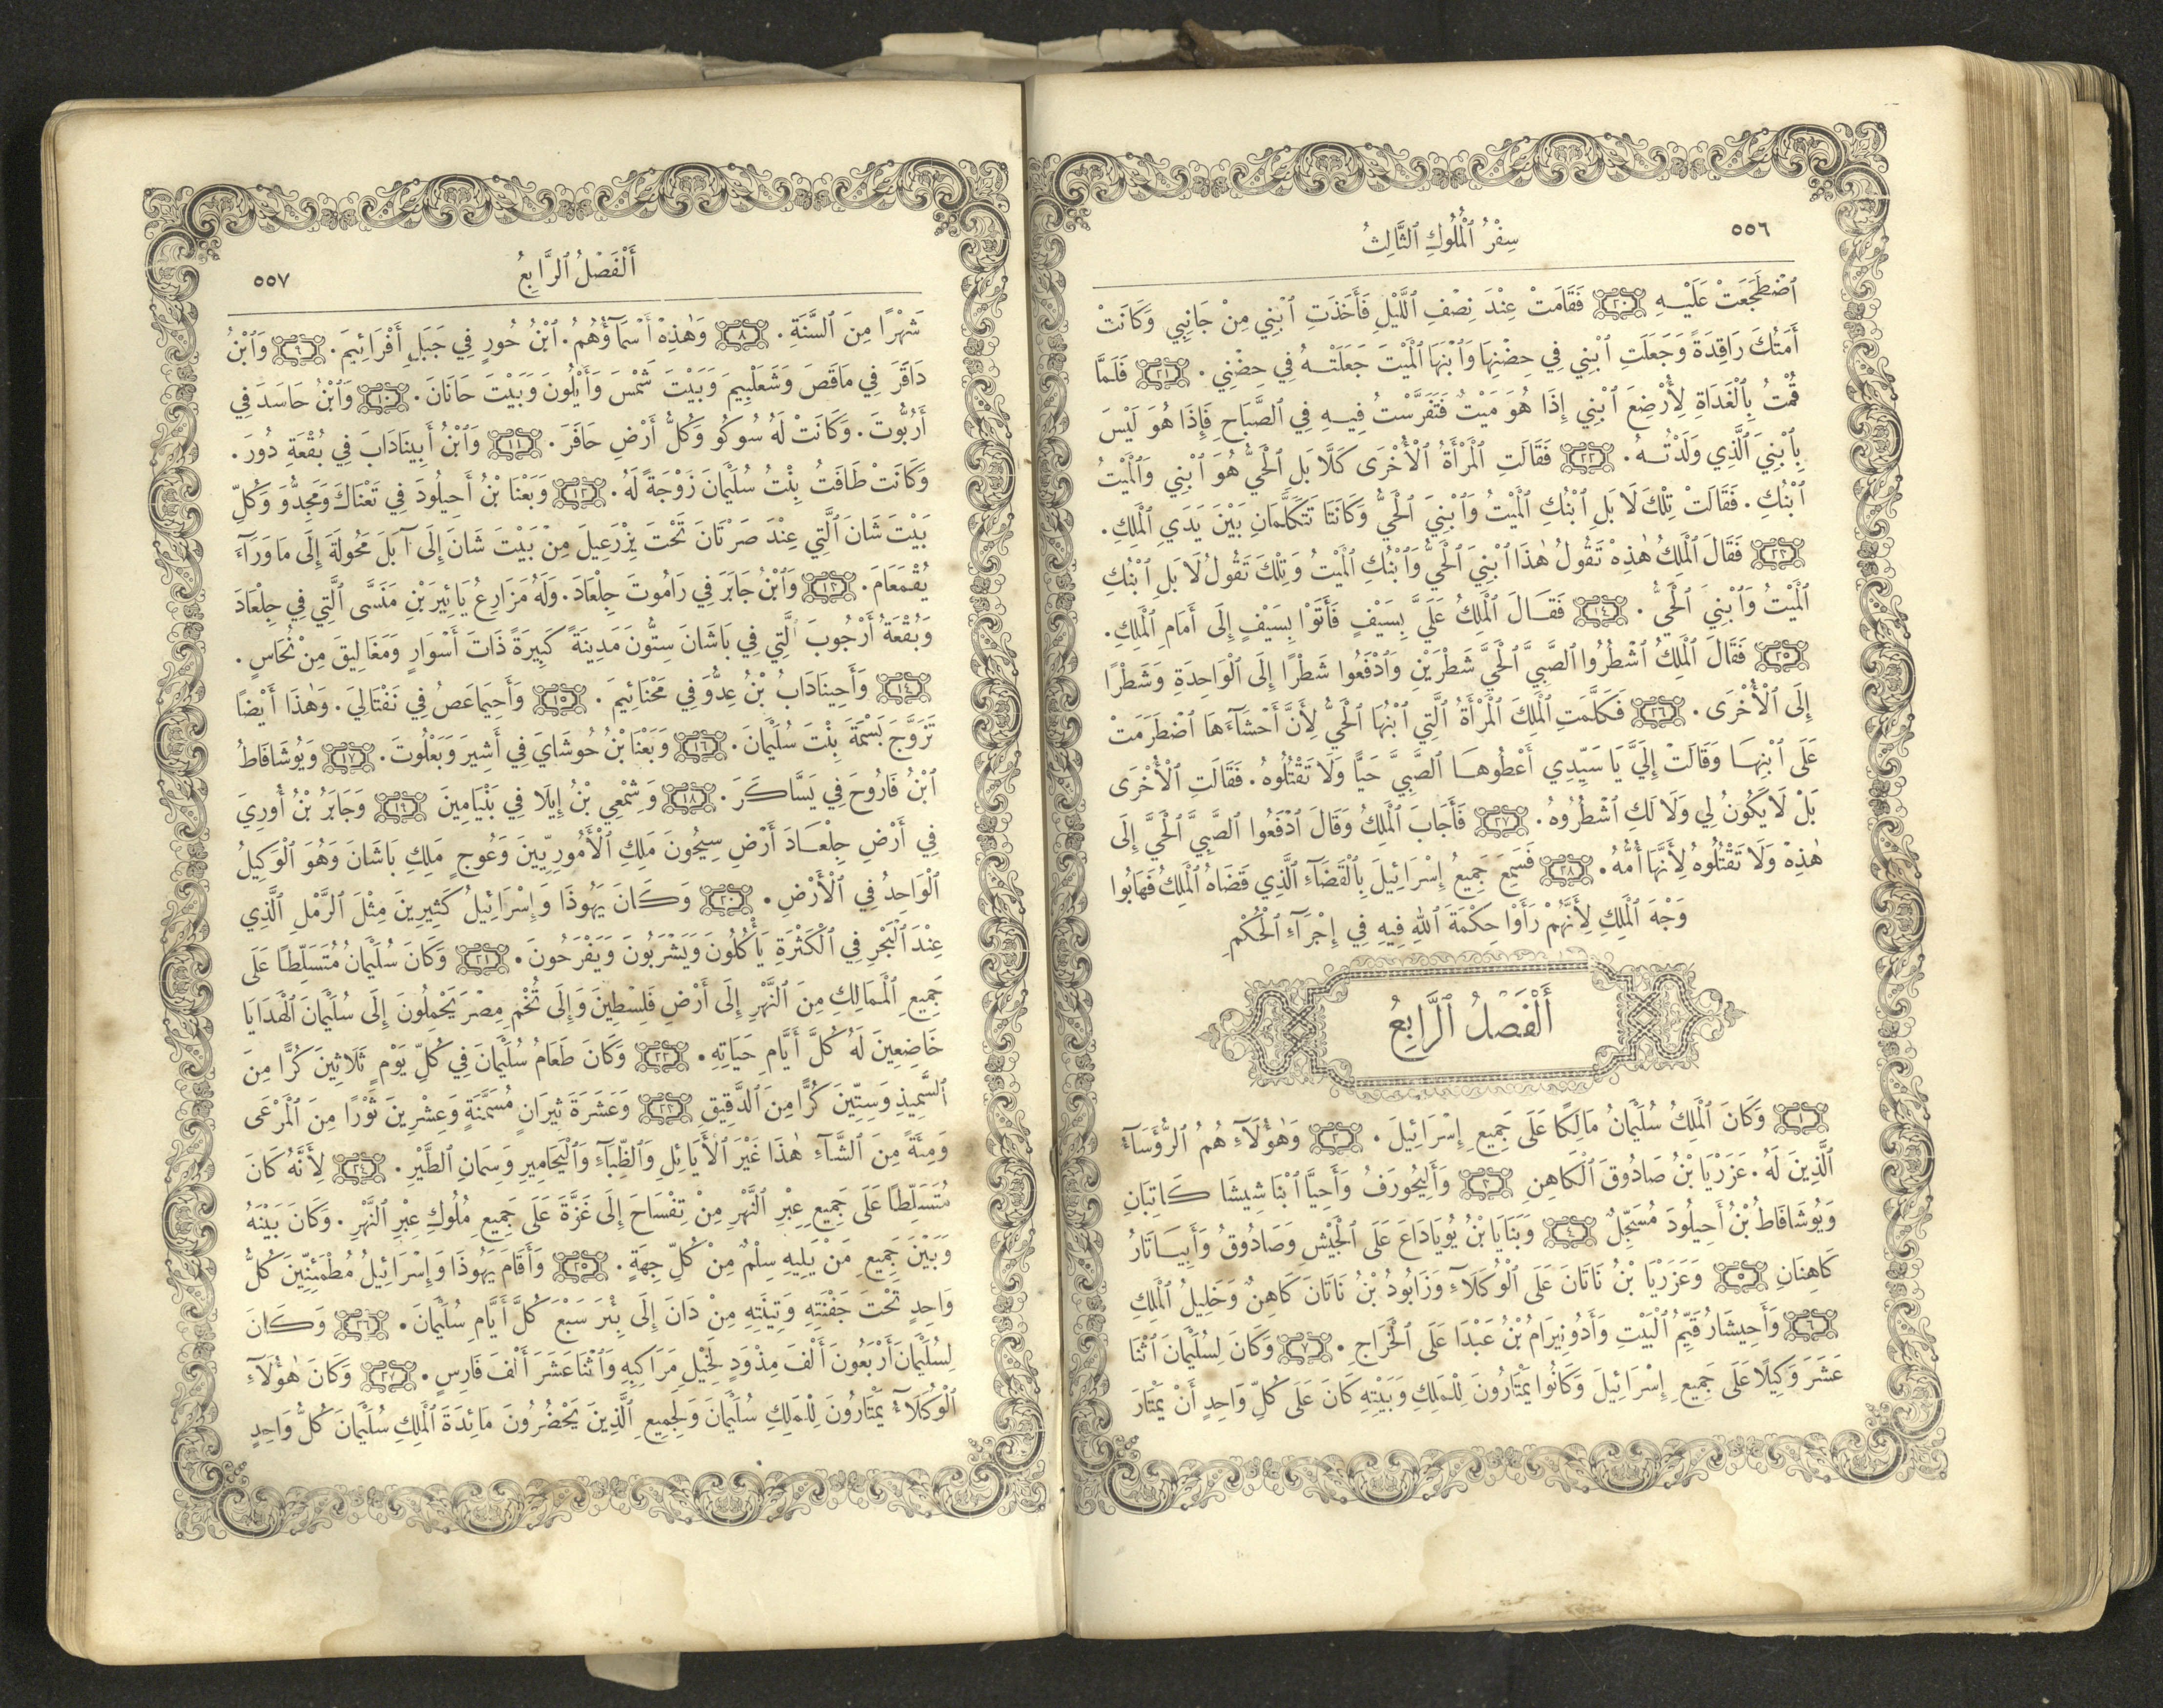 ٥٥٦
سِفْرُ ٱلْمُلُوكِ ٱلثَّالِثُ
ٱضْطَجَعَتْ عَلَيْهِ ٢٠ فَقَامَتْ عِنْدَ نِصْفِ ٱللَّيْلِ فَأَخَذَتِ ٱبْنِي مِنْ جَانِبِي وَكَانَتْ
أَمَتُكَ رَاقِدَةً وَجَعَلَتِ ٱبْنِي فِي حِضْنِهَا وَٱبْنَهَا ٱلْمَيْتَ جَعَلَتْهُ فِي حِضْنِي. ٢١ فَلَمَّا
قُمْتُ بِٱلْغَدَاةِ لِأُرْضِعَ ٱبْنِي إِذَا هُوَ مَيْتٌ فَتَفَرَّسْتُ فِيهِ فِي ٱلصَّبَاحِ فَإِذَا هُوَ لَيْسَ
بِٱبْنِيَ ٱلَّذِي وَلَدْتُهُ. ٢٢ فَقَالَتِ ٱلْمَرْأَةُ ٱلْأُخْرَى كَلَّا بَلِ ٱلْحَيُّ هُوَ ٱبْنِي وَٱلْمَيْتُ
ٱبْنُكِ. فَقَالَتْ تِلْكَ لَا بَلِ ٱبْنُكِ ٱلْمَيْتُ وَٱبْنِيَ ٱلْحَيُّ وَكَانَتَا تَتَكَلَّمَانِ بَيْنَ يَدَيِ ٱلْمَلِكِ.
٢٣ فَقَالَ ٱلْمَلِكُ هٰذِهْ تَقُولُ هٰذَا ٱبْنِيَ ٱلْحَيُّ وَٱبْنُكِ ٱلْمَيْتُ وَتِلْكَ تَقُولُ لَا بَلِ ٱبْنُكِ
ٱلْمَيْتُ وَٱبْنِيَ ٱلْحَيُّ. ٢٤ فَقَالَ ٱلْمَلِكُ عَلَيَّ بِسَيْفٍ فَأَتَوْا بِسَيْفٍ إِلَى أَمَامِ ٱلْمَلِكِ.
٢٥ فَقَالَ ٱلْمَلِكُ ٱشْطُرُوا ٱلصَّبِيَّ ٱلْحَيَّ شَطْرَيْنِ وَٱدْفَعُوا شَطْرًا إِلَى ٱلْوَاحِدَةِ وَشَطْرًا
إِلَى ٱلْأُخْرَى. ٢٦ فَكَلَّمَتِ ٱلْمَلِكَ ٱلْمَرْأَةُ ٱلَّتِي ٱبْنُهَا ٱلْحَيُّ لِأَنَّ أَحْشَآءَهَا ٱضْطَرَمَتْ
عَلَى ٱبْنِهَا وَقَالَتْ إِلَيَّ يَا سَيِّدِي أَعْطُوهَا ٱلصَّبِيَّ حَيًّا وَلَا تَقْتُلُوهُ. فَقَالَتِ ٱلْأُخْرَى
بَلْ لَا يَكُونُ لِي وَلَا لَكِ ٱشْطُرُوهُ. ٢٧ فَأَجَابَ ٱلْمَلِكُ وَقَالَ ٱدْفَعُوا ٱلصَّبِيَّ ٱلْحَيَّ إِلَى
هٰذِهْ وَلَا تَقْتُلُوهُ لِأَنَّهَا أُمُّهُ. ٢٨ فَسَمِعَ جَمِيعُ إِسْرَائِيلَ بِٱلْقَضَآءِ ٱلَّذِي قَضَاهُ ٱلْمَلِكُ فَهَابُوا
وَجْهَ ٱلْمَلِكِ لِأَنَّهُمْ رَأَوْا حِكْمَةَ ٱللهِ فِيهِ فِي إِجْرَآءِ ٱلْحُكْمِ
أَلْفَصْلُ ٱلرَّابِعُ
١ وَكَانَ ٱلْمَلِكُ سُلَيْمَانُ مَالِكًا عَلَى جَمِيعِ إِسْرَائِيلَ. ٢ وَهٰؤُلَآءِ هُمُ ٱلرُّؤَسَآءُ
ٱلَّذِينَ لَهُ. عَزَرْيَا بْنُ صَادُوقَ ٱلْكَاهِنِ ٣ وَأَلِيحُورَفُ وَأَحِيَّا ٱبْنَا شِيشَا كَاتِبَانِ
وَيُوشَافَاطُ بْنُ أَحِيلُودَ مُسَجِّلٌ ٤ وَبَنَايَا بْنُ يُويَادَاعَ عَلَى ٱلْجَيْشِ وَصَادُوقُ وَأَبِيَاتَارُ
كَاهِنَانِ ٥ وَعَزَرْيَا بْنُ نَاتَانَ عَلَى ٱلْوُكَلَآءِ وَزَابُودُ بْنُ نَاتَانَ كَاهِنٌ وَخَلِيلُ ٱلْمَلِكِ
٦ وَأَحِيشَارُ قَيِّمُ ٱلْبَيْتِ وَأَدُونِيرَامُ بْنُ عَبْدَا عَلَى ٱلْخَرَاجِ. ٧ وَكَانَ لِسُلَيْمَانَ ٱثْنَا
عَشَرَ وَكِيلًا عَلَى جَمِيعِ إِسْرَائِيلَ وَكَانُوا يَمْتَارُونَ لِلْمَلِكِ وَبَيْتِهِ كَانَ عَلَى كُلِّ وَاحِدٍ أَنْ يَمْتَارَ
أَلْفَصْلُ ٱلرَّابِعُ
٥٥٧
شَهْرًا مِنَ ٱلسَّنَةِ. ٨ وَهٰذِهْ أَسْمَآؤُهُمُ. ٱبْنُ حُورٍ فِي جَبَلِ أَفْرَائِيمَ. ٩ وَٱبْنُ
دَاقَرَ فِي مَاقَصَ وَشَعَلْبِيمَ وَبَيْتَ شَمْسَ وَأَيْلُونَ وَبَيْتَ حَانَانَ. ١٠ وَٱبْنُ حَاسَدَ فِي
أَرُبُّوتَ. وَكَانَتْ لَهُ سُوكُو وَكُلُّ أَرْضِ حَافَرَ. ١١ وَٱبْنُ أَبِينَادَابَ فِي بُقْعَةِ دُورَ.
وَكَانَتْ طَافَتُ بِنْتُ سُلَيْمَانَ زَوْجَةً لَهُ. ١٢ وَبَعْنَا بْنُ أَحِيلُودَ فِي تَعْنَاكَ وَمَجِدُّوَ وَكُلِّ
بَيْتَ شَانَ ٱلَّتِي عِنْدَ صَرْتَانَ تَحْتَ يِزْرَعِيلَ مِنْ بَيْتَ شَانَ إِلَى آبَلَ مَحُولَةَ إِلَى مَا وَرَآءَ
يُقْمَعَامَ. ١٣ وَٱبْنُ جَابَرَ فِي رَامُوتَ جِلْعَادَ. وَلَهُ مَزَارِعُ يَائِيرَ بْنِ مَنَسَّى ٱلَّتِي فِي جِلْعَادَ
وَبُقْعَةُ أَرْجُوبَ ٱلَّتِي فِي بَاشَانَ سِتُّونَ مَدِينَةً كَبِيرَةً ذَاتَ أَسْوَارٍ وَمَغَالِيقَ مِنْ نُحَاسٍ.
١٤ وَأَحِينَادَابُ بْنُ عِدُّوَ فِي مَحْنَائِيمَ. ١٥ وَأَحِيمَاعَصُ فِي نَفْتَالِيَ. وَهٰذَا أَيْضًا
تَزَوَّجَ بَسْمَةَ بِنْتَ سُلَيْمَانَ. ١٦ وَبَعْنَا بْنُ حُوشَايَ فِي أَشِيرَ وَبَعْلُوتَ. ١٧ وَيُوشَافَاطُ
ٱبْنُ فَارُوحَ فِي يَسَّاكَرَ. ١٨ وَشِمْعِي بْنُ إِيلَا فِي بَنْيَامِينَ ١٩ وَجَابَرُ بْنُ أُورِيَ
فِي أَرْضِ جِلْعَادَ أَرْضِ سِيحُونَ مَلِكِ ٱلْأَمُورِيِّينَ وَعُوجٍ مَلِكِ بَاشَانَ وَهُوَ ٱلْوَكِيلُ
ٱلْوَاحِدُ فِي ٱلْأَرْضِ. ٢٠ وَكَانَ يَهُوذَا وَإِسْرَائِيلُ كَثِيرِينَ مِثْلَ ٱلرَّمْلِ ٱلَّذِي
عِنْدَ ٱلْبَحْرِ فِي ٱلْكَثْرَةِ يَأْكُلُونَ وَيَشْرَبُونَ وَيَفْرَحُونَ. ٢١ وَكَانَ سُلَيْمَانُ مُتَسَلِّطًا عَلَى
جَمِيعِ ٱلْمَمَالِكِ مِنَ ٱلنَّهْرِ إِلَى أَرْضِ فَلِسْطِينَ وَإِلَى تُخْمِ مِصْرَ يَحْمِلُونَ إِلَى سُلَيْمَانَ ٱلْهَدَايَا
خَاضِعِينَ لَهُ كُلَّ أَيَّامِ حَيَاتِهِ. ٢٢ وَكَانَ طَعَامُ سُلَيْمَانَ فِي كُلِّ يَوْمٍ ثَلَاثِينَ كُرًّا مِنَ
ٱلسَّمِيذِ وَسِتِّينَ كُرًّا مِنَ ٱلدَّقِيقِ ٢٣ وَعَشَرَةَ ثِيرَانٍ مُسَمَّنَةٍ وَعِشْرِينَ ثَوْرًا مِنَ ٱلْمَرْعَى
وَمِئَةً مِنَ ٱلشَّآءِ هٰذَا غَيْرَ ٱلْأَيَائِلِ وَٱلظِّبَآءِ وَٱلْيَحَامِيرِ وَسِمَانِ ٱلطَّيْرِ. ٢٤ لِأَنَّهُ كَانَ
مُتَسَلِّطًا عَلَى جَمِيعِ عِبْرِ ٱلنَّهْرِ مِنْ تِفْسَاحَ إِلَى غَزَّةَ عَلَى جَمِيعِ مُلُوكِ عِبْرِ ٱلنَّهْرِ. وَكَانَ بَيْنَهُ
وَبَيْنَ جَمِيعِ مَنْ يَلِيهِ سِلْمٌ مِنْ كُلِّ جِهَةٍ. ٢٥ وَأَقَامَ يَهُوذَا وَإِسْرَائِيلُ مُطْمَئِنِّينَ كُلُّ
وَاحِدٍ تَحْتَ جَفْنَتِهِ وَتِينَتِهِ مِنْ دَانَ إِلَى بِئْرَ سَبْعَ كُلَّ أَيَّامِ سُلَيْمَانَ. ٢٦ وَكَانَ
لِسُلَيْمَانَ أَرْبَعُونَ أَلْفَ مِذْوَدٍ لِخَيْلِ مَرَاكِبِهِ وَٱثْنَا عَشَرَ أَلْفَ فَارِسٍ. ٢٧ وَكَانَ هٰؤُلَآءِ
ٱلْوُكَلَآءُ يَمْتَارُونَ لِلْمَلِكِ سُلَيْمَانَ وَلِجَمِيعِ ٱلَّذِينَ يَحْضُرُونَ مَائِدَةَ ٱلْمَلِكِ سُلَيْمَانَ كُلُّ وَاحِدٍ